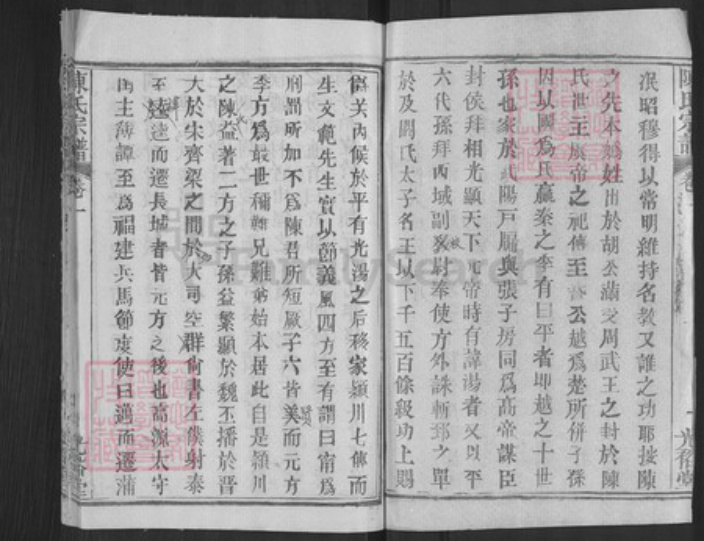 泯昭穆得以常明維持名教又誰之功耶按陳
之先本媯姓出於胡公滿受周武王之封於陳
氏世主虞帝之祀傳至公越爲楚所併子孫
因以國爲氏嬴秦之季有曰平者即越之十世
孫也家於武陽戸牖與張子房同爲高帝謀臣
封侯拜相光顯天下元帝時有諱湯者又以平
六代孫拜西域副校尉奉使方外誅斬郅之單
於及閼氏太子名王以下千五百餘級功上賜
爵关內候於平有光湯之后移家潁川七傳而
生文範先生實以節義風四方至有謂曰甯爲
刑罰所加不爲陳君所短厥子六皆賢美而元方
季方爲最世稱難兄難弟始本居此自是潁川
之陳氏益著二方之子孫益繁顯於魏丕播於晋
大於宋齊梁之間於大司空群尙書左僕射泰
至逵逵而遷長城者皆元方之後也高源太守
西主簿譚至爲福建兵馬節度使曰邁而遷蒲
陳氏宗譜
卷一
陳氏宗譜
卷一
光裕堂
FamilySearch